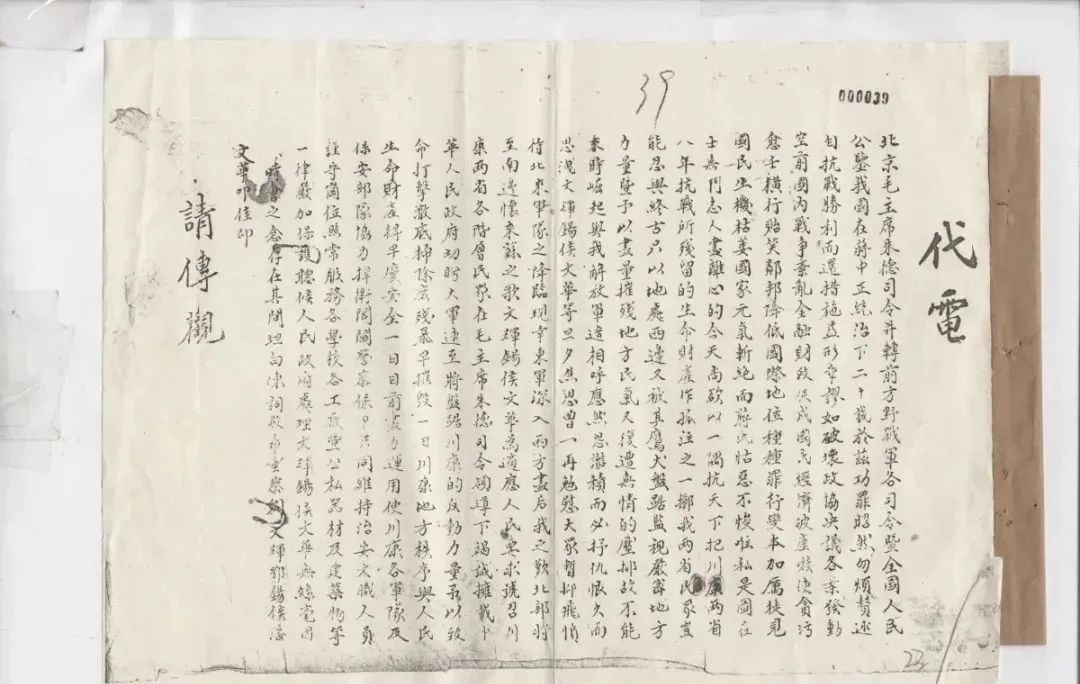 39
000039
代電
北京毛主席朱德司令并轉前方野戰軍各司令暨全國人民
公鑒我國在蔣中正統治下二十載於茲功罪昭然勿煩贅述
自抗戰勝利而還措施益形乖謬如破壞政協決議各案發動
空前國內戰爭紊亂金融財政促成國民經濟破產嗾使貪污
僉壬橫行貽笑鄰邦降低國際地位種種罪行變本加厲徒見
國民生機枯萎國家元氣斬絕而蔣氏怙惡不悛唯私是圖在
士無鬥志人盡離心的今天尚欲以一隅抗天下把川康兩省
八年抗戰所殘留的生命財產作孤注之一擲我兩省民眾豈
能忍與終古只以地處西邊又被其鷹犬盤踞監視嚴密地方
力量暨予以盡量摧残地方民氣又復遭無情的壓抑故不能
乘時崛起與我解放軍遙相呼應然思潮積而必抒仇恨久而
思洩文輝錫侯文華等旦夕焦思曾一再勉慰大眾暫抑飛憤
待北來軍隊之降臨現幸東軍深入西方盡后我之歎北部將
至南邊懷來蘇之歌文輝錫侯文華為適應人民要求號召川
康兩省各階層民眾在毛主席朱德司令領導下竭誠擁戴中
華人民政府切盼大軍速至將盤踞川康的反動力量予以致
命打擊澈底掃除庶残暴早摧毀一日川康地方秩序與人民
生命財產得早慶安全一日目前盡力運用使川康各軍隊及
保安部隊協力捍衛閭閻警察保甲共同維持治安文職人員
謹守崗位照常服務各學校各工厰暨公私器材及建築物等
一律嚴加保護聽候人民政府處理文輝錫侯文華無絲毫因
時會之念存在其間坦白陳詞敬希垂察劉文輝鄧錫侯潘
文華叩佳印
請傳觀